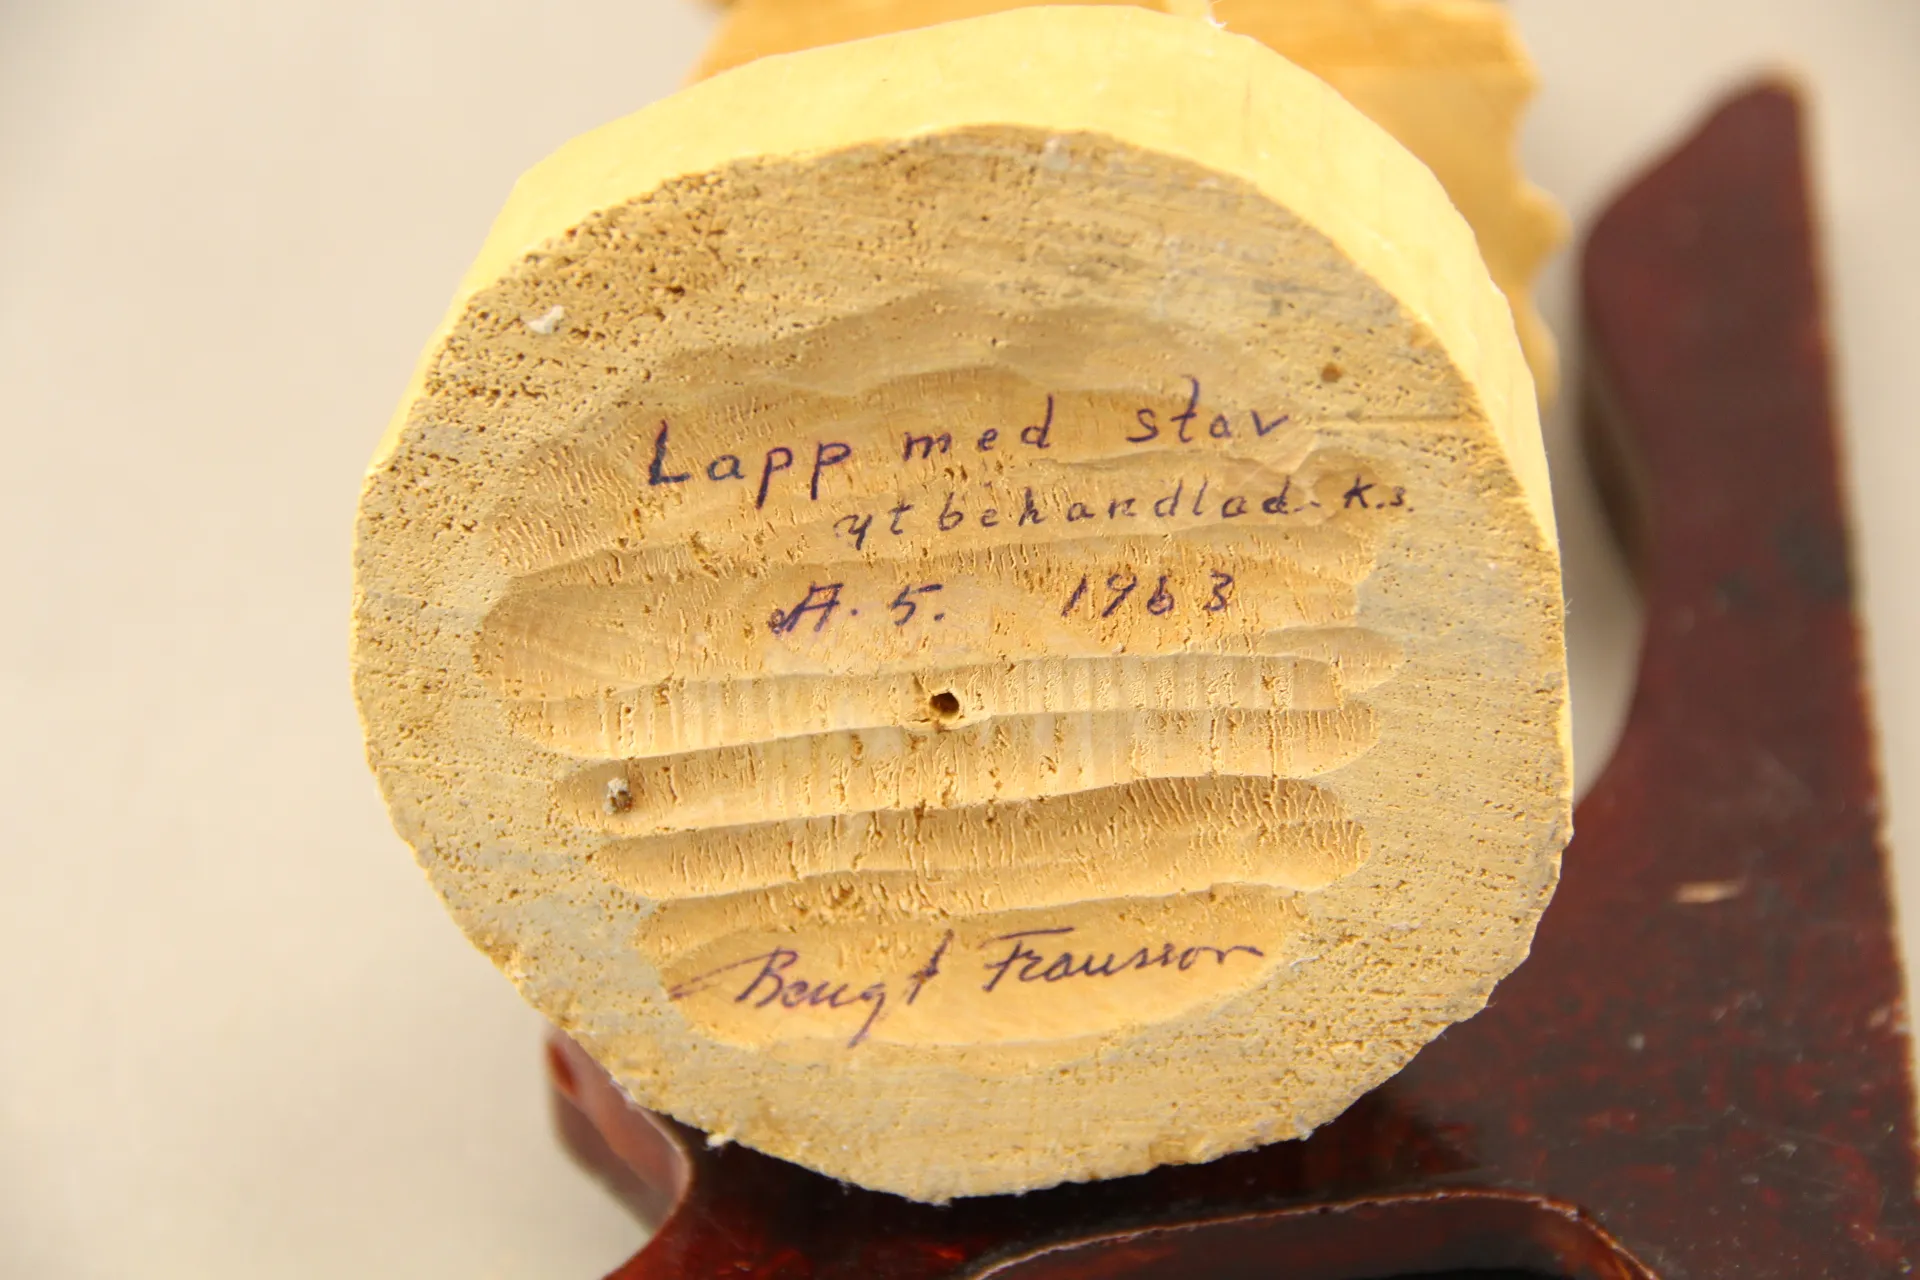 Lapp med stav
ytbehandlad. K.S.
A. 5. 1963
Bengt Fransson